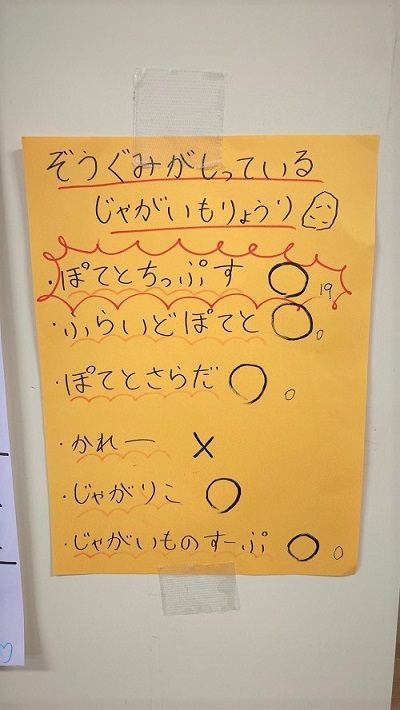 ぞうぐみがしっている
じゃがいもりょうり
・ぽてとちっぷす ○ 19
・ふらいどぽてと ○ 0
・ぽてとさらだ ○ 0
・かれー ×
・じゃがりこ ○
・じゃがいものすーぷ ○ 0